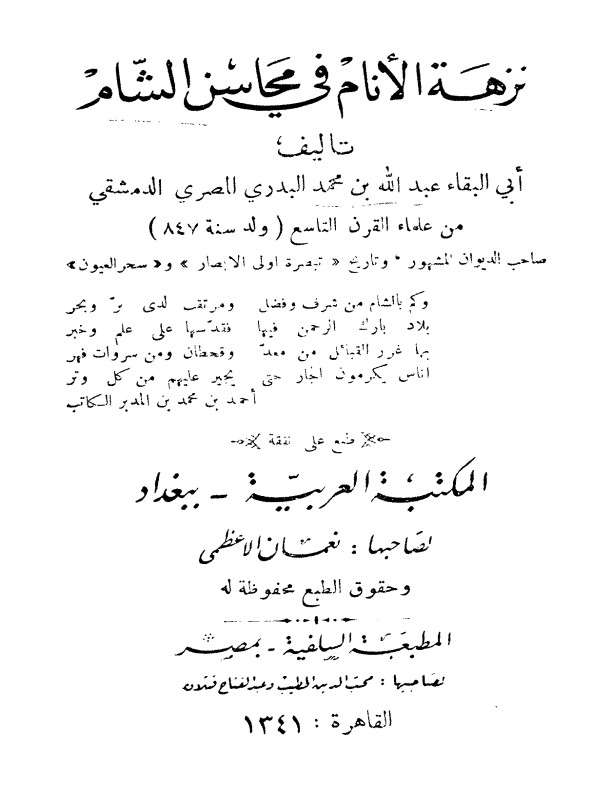 نزهة الأنام في محاسن الشام
تأليف
أبي البقاء عبد الله بن محمد البدري المصري الدمشقي
من علماء القرن التاسع ( ولد سنة ٨٤٧ )
صاحب الديوان المشهور * وتاريخ « تبصرة اولى الابصار » و« سحر العيون »
وكم بالشام من شرف وفضل ومرتقب لدى برّ وبحر
بلاد بارك الرحمن فيها فقدّسها على علم وخبر
بها غرر القبائل من معدّ وقحطان ومن سروات فهر
اناس يكرمون الجار حتى يجير عليهم من كل وتر
أحمد بن محمد بن المدبر الكاتب
طبع على نفقة
المكتبة العربيّة - ببغداد
لصاحبها : نعمان الاعظمى
وحقوق الطبع محفوظة له
المطبعة السلفية - بمصر
لصاحبيها : محب الدين الخطيب وعبد الفتاح قتلان
القاهرة : ١٣٤١